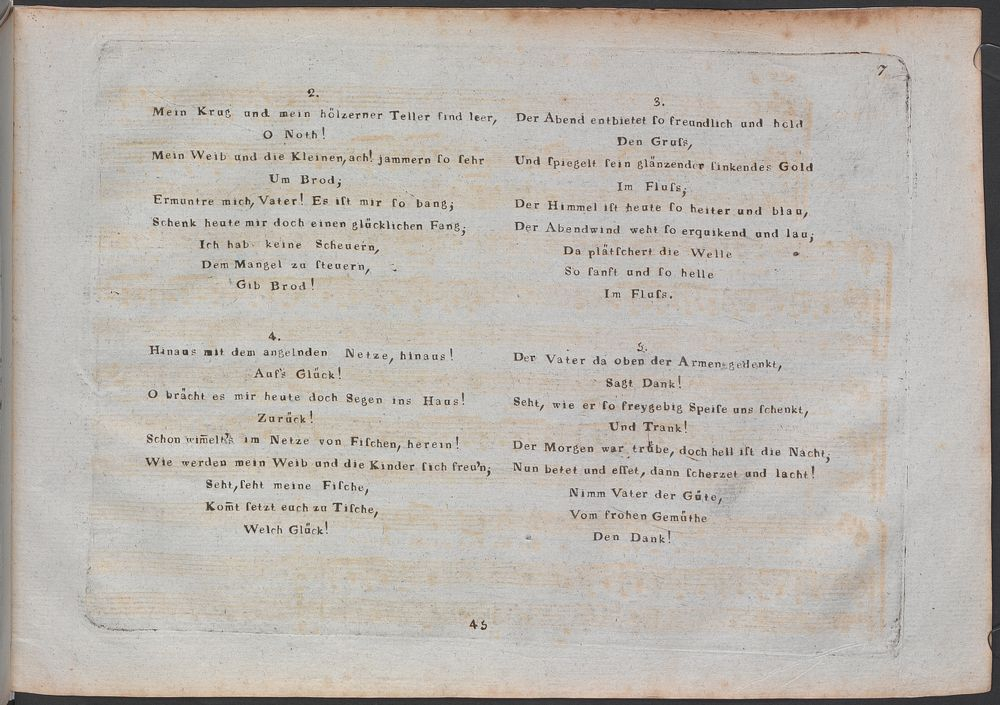 7
2.
Mein Krug und mein hölzerner Teller ſind leer,
O Noth!
Mein Weib und die Kleinen, ach! jammern ſo ſehr
Um Brod;
Ermuntre mich, Vater! Es iſt mir ſo bang;
Schenk heute mir doch einen glücklichen Fang;
Ich hab keine Scheuern,
Dem Mangel zu ſteuern,
Gib Brod!
3.
Der Abend entbietet ſo freundlich und hold
Den Gruſs,
Und ſpiegelt ſein glänzender ſinkendes Gold
Im Fluſs;
Der Himmel iſt heute ſo heiter und blau,
Der Abendwind weht ſo erquikend und lau;
Da plätſchert die Welle
So ſanft und ſo helle
Im Fluſs.
4.
Hinaus mit dem angelnden Netze, hinaus!
Auf's Glück!
O brächt es mir heute doch Segen ins Haus!
Zurück!
Schon wim̅elt's im Netze von Fiſchen, herein!
Wie werden mein Weib und die Kinder ſich freu'n;
Seht, ſeht meine Fiſche,
Kom̅t ſetzt euch zu Tiſche,
Welch Glück!
5.
Der Vater da oben der Armen gedenkt,
Sagt Dank!
Seht, wie er ſo freygebig Speiſe uns ſchenkt,
Und Trank!
Der Morgen war trübe, doch hell iſt die Nacht;
Nun betet und eſſet, dann ſcherzet und lacht!
Nimm Vater der Güte,
Vom frohen Gemüthe
Den Dank!
45